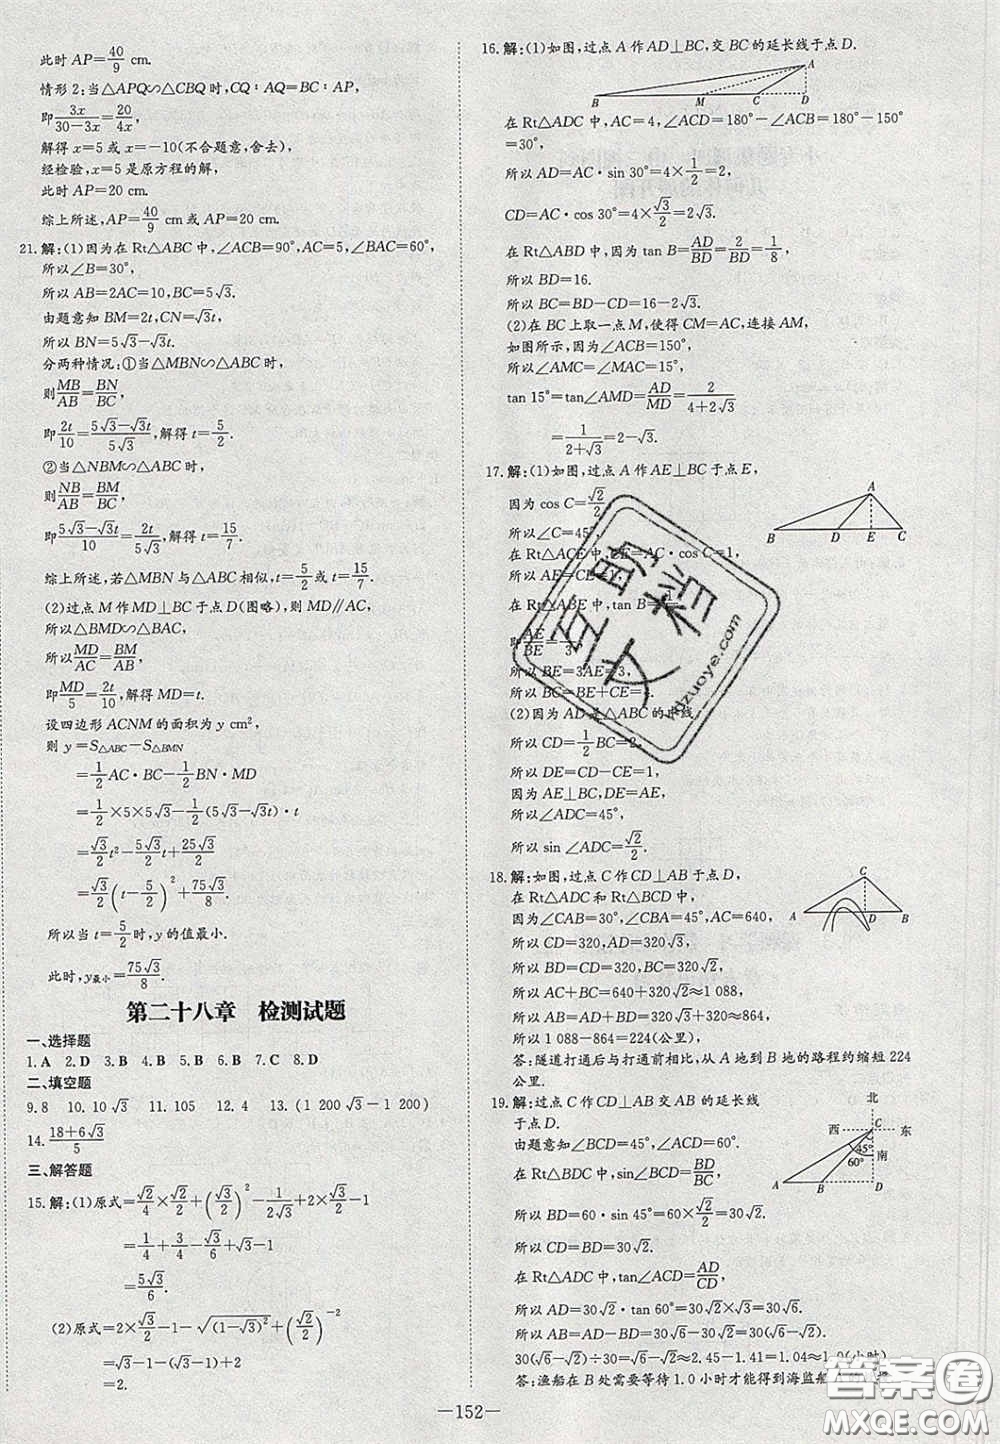 此时 AP=40/9 cm.
情形 2:当△APQ∽△CBQ 时,CQ∶AQ=BC∶PA,
即 3x/(30-3x)=20/(4x),
解得 x=5 或 x=-10(不合题意,舍去).
经检验,x=5 是原方程的解,
此时 AP=20 cm.
综上所述,AP=40/9 cm 或 AP=20 cm.
21.解:(1)因为在 Rt△ABC 中,∠ACB=90°,AC=5,∠BAC=60°,
所以∠B=30°,
所以 AB=2AC=10,BC=5√3.
由题意知 BM=2t,CN=√3t,
所以 BN=5√3-√3t.
分两种情况:①当△MBN∽△ABC 时,
则 MB/AB=BN/BC,
即 2t/10=(5√3-√3t)/(5√3),解得 t=5/2.
②当△NBM∽△ABC 时,
则 NB/AB=BM/BC,
即 (5√3-√3t)/10=2t/(5√3),解得 t=15/7.
综上所述,若△MBN 与△ABC 相似,t=5/2 或 15/7.
(2)过点 M 作 MD⊥BC 于点 D(图略),则 MD∥AC,
所以△BMD∽△BAC,
所以 MD/AC=BM/AB,
即 MD/5=2t/10,解得 MD=t.
设四边形 ACNM 的面积为 y cm²,
则 y=S△ABC-S△BMN
=1/2 AC·BC-1/2 BN·MD
=1/2×5×5√3-1/2(5√3-√3t)·t
=√3/2 t²-5√3/2 t+25√3/2
=√3/2(t-5/2)²+75√3/8.
所以当 t=5/2 时,y 的值最小.
此时,y最小=75√3/8.
第二十八章 检测试题
一、选择题
1.A 2.D 3.B 4.B 5.B 6.B 7.C 8.D
二、填空题
9.8 10.10√3 11.105 12.4 13.(1 200√3-1 200)
14.(18+6√3)/5
三、解答题
15.解:(1)原式=√2/4×√2/2+(√3/2)²-1/(2√3)+2×√3/2-1
=1/4+3/4-√3/6+√3-1
=5√3/6.
(2)原式=2×√3/2-1-√((1-√3)²)+(√2/2)⁻²
=√3-1-(√3-1)+2
=2.
16.解:(1)如图,过点 A 作 AD⊥BC,交 BC 的延长线于点 D.
A
B M C D
在 Rt△ADC 中,AC=4,∠ACD=180°-∠ACB=180°-150°
=30°,
所以 AD=AC·sin 30°=4×1/2=2,
CD=AC·cos 30°=4×√3/2=2√3.
在 Rt△ABD 中,tan B=AD/BD=2/BD=1/8,
所以 BD=16.
所以 BC=BD-CD=16-2√3.
(2)在 BC 上取一点 M,使得 CM=AC,连接 AM,
如图所示,因为∠ACB=150°,
所以∠AMC=∠MAC=15°,
tan 15°=tan∠AMD=AD/MD=2/(4+2√3)
=1/(2+√3)=2-√3.
17.解:(1)如图,过点 A 作 AE⊥BC 于点 E,
因为 cos C=√2/2,
所以∠C=45°,
在 Rt△ACE 中,CE=AC·cos C=1,
A
B D E C
在 Rt△ABE 中,tan B=
即 AE/BE= /3,
所以 BE=3AE=3,
所以 BC=BE+CE=
(2)因为 AD 是△ABC 的中线,
所以 CD=1/2 BC=2,
所以 DE=CD-CE=1,
因为 AE⊥BC,DE=AE,
所以∠ADC=45°,
所以 sin ∠ADC=√2/2.
18.解:如图,过点 C 作 CD⊥AB 于点 D,
在 Rt△ADC 和 Rt△BCD 中,
因为∠CAB=30°,∠CBA=45°,AC=640,
C
A D B
所以 CD=320,AD=320√3,
所以 BD=CD=320,BC=320√2,
所以 AC+BC=640+320√2≈1 088,
所以 AB=AD+BD=320√3+320≈864,
所以 1 088-864=224(公里),
答:隧道打通后与打通前相比,从 A 地到 B 地的路程约缩短 224
公里.
19.解:过点 C 作 CD⊥AB 交 AB 的延长线
于点 D.
由题意知∠BCD=45°,∠ACD=60°.
在 Rt△BDC 中,sin∠BCD=BD/BC,
北
西 C 东
45° 南
60°
A B D
所以 BD=60·sin 45°=60×√2/2=30√2.
所以 CD=BD=30√2.
在 Rt△ADC 中,tan∠ACD=AD/CD,
所以 AD=30√2·tan 60°=30√2×√3=30√6.
所以 AB=AD-BD=30√6-30√2=30(√6-√2).
30(√6-√2)÷30=√6-√2≈2.45-1.41=1.04≈1.0(小时)
答:渔船在 B 处需要等待 1.0 小时才能得到海监船
—152—
互助文档
hdzuoye.com
答案圈
MXQE.COM